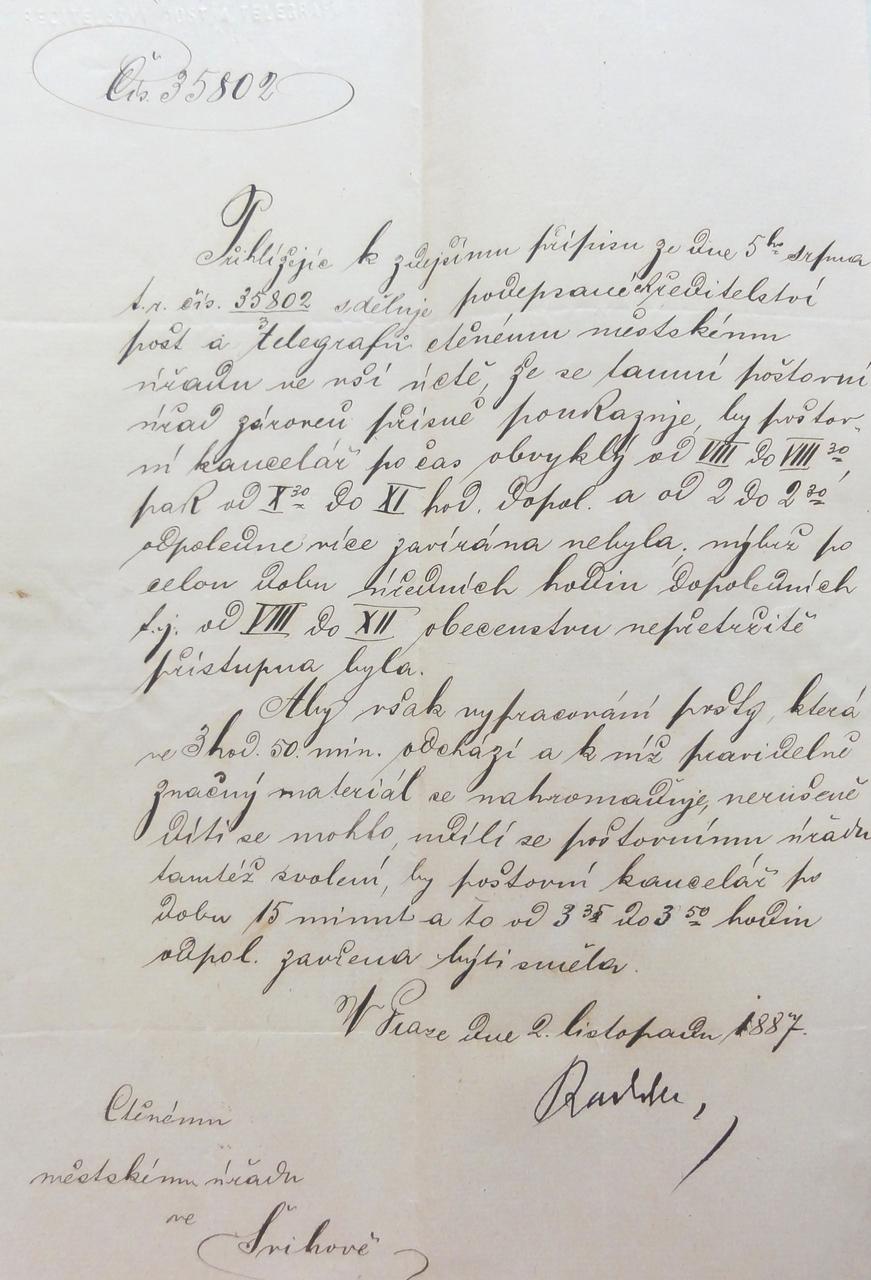 Čís. 35802
Přihlížejíc k zdejšímu přípisu ze dne 5ho srpna
t.r. čís. 35802 sděluje podepsané ředitelství
pošt a telegrafů ctěnému městskému
úřadu ve vší úctě, že se tamní poštovní
úřad zároveň přísně poukazuje, by poštov-
ní kancelář po čas obvyklý od VIII do VIII 30,
pak od X 30 do XI hod. dopol. a od 2 do 2 30
odpoledne více zavírána nebyla, nýbrž po
celou dobu úředních hodin dopoledních
t.j. od VIII do XII obecenstvu nepřetržitě
přístupna byla.
Aby však vypracování pošty, která
ve 3 hod. 50. min. odchází a k níž pravidelně
značný materiál se nahromaďuje, nerušeně
díti se mohlo, udílí se poštovnímu úřadu
tamtéž svolení, by poštovní kancelář po
dobu 15 minut a to od 3 35 do 3 50 hodin
odpol. zavřena býti směla.
V Praze dne 2. listopadu 1887.
Ctěnému
městskému úřadu
ve
Švihově